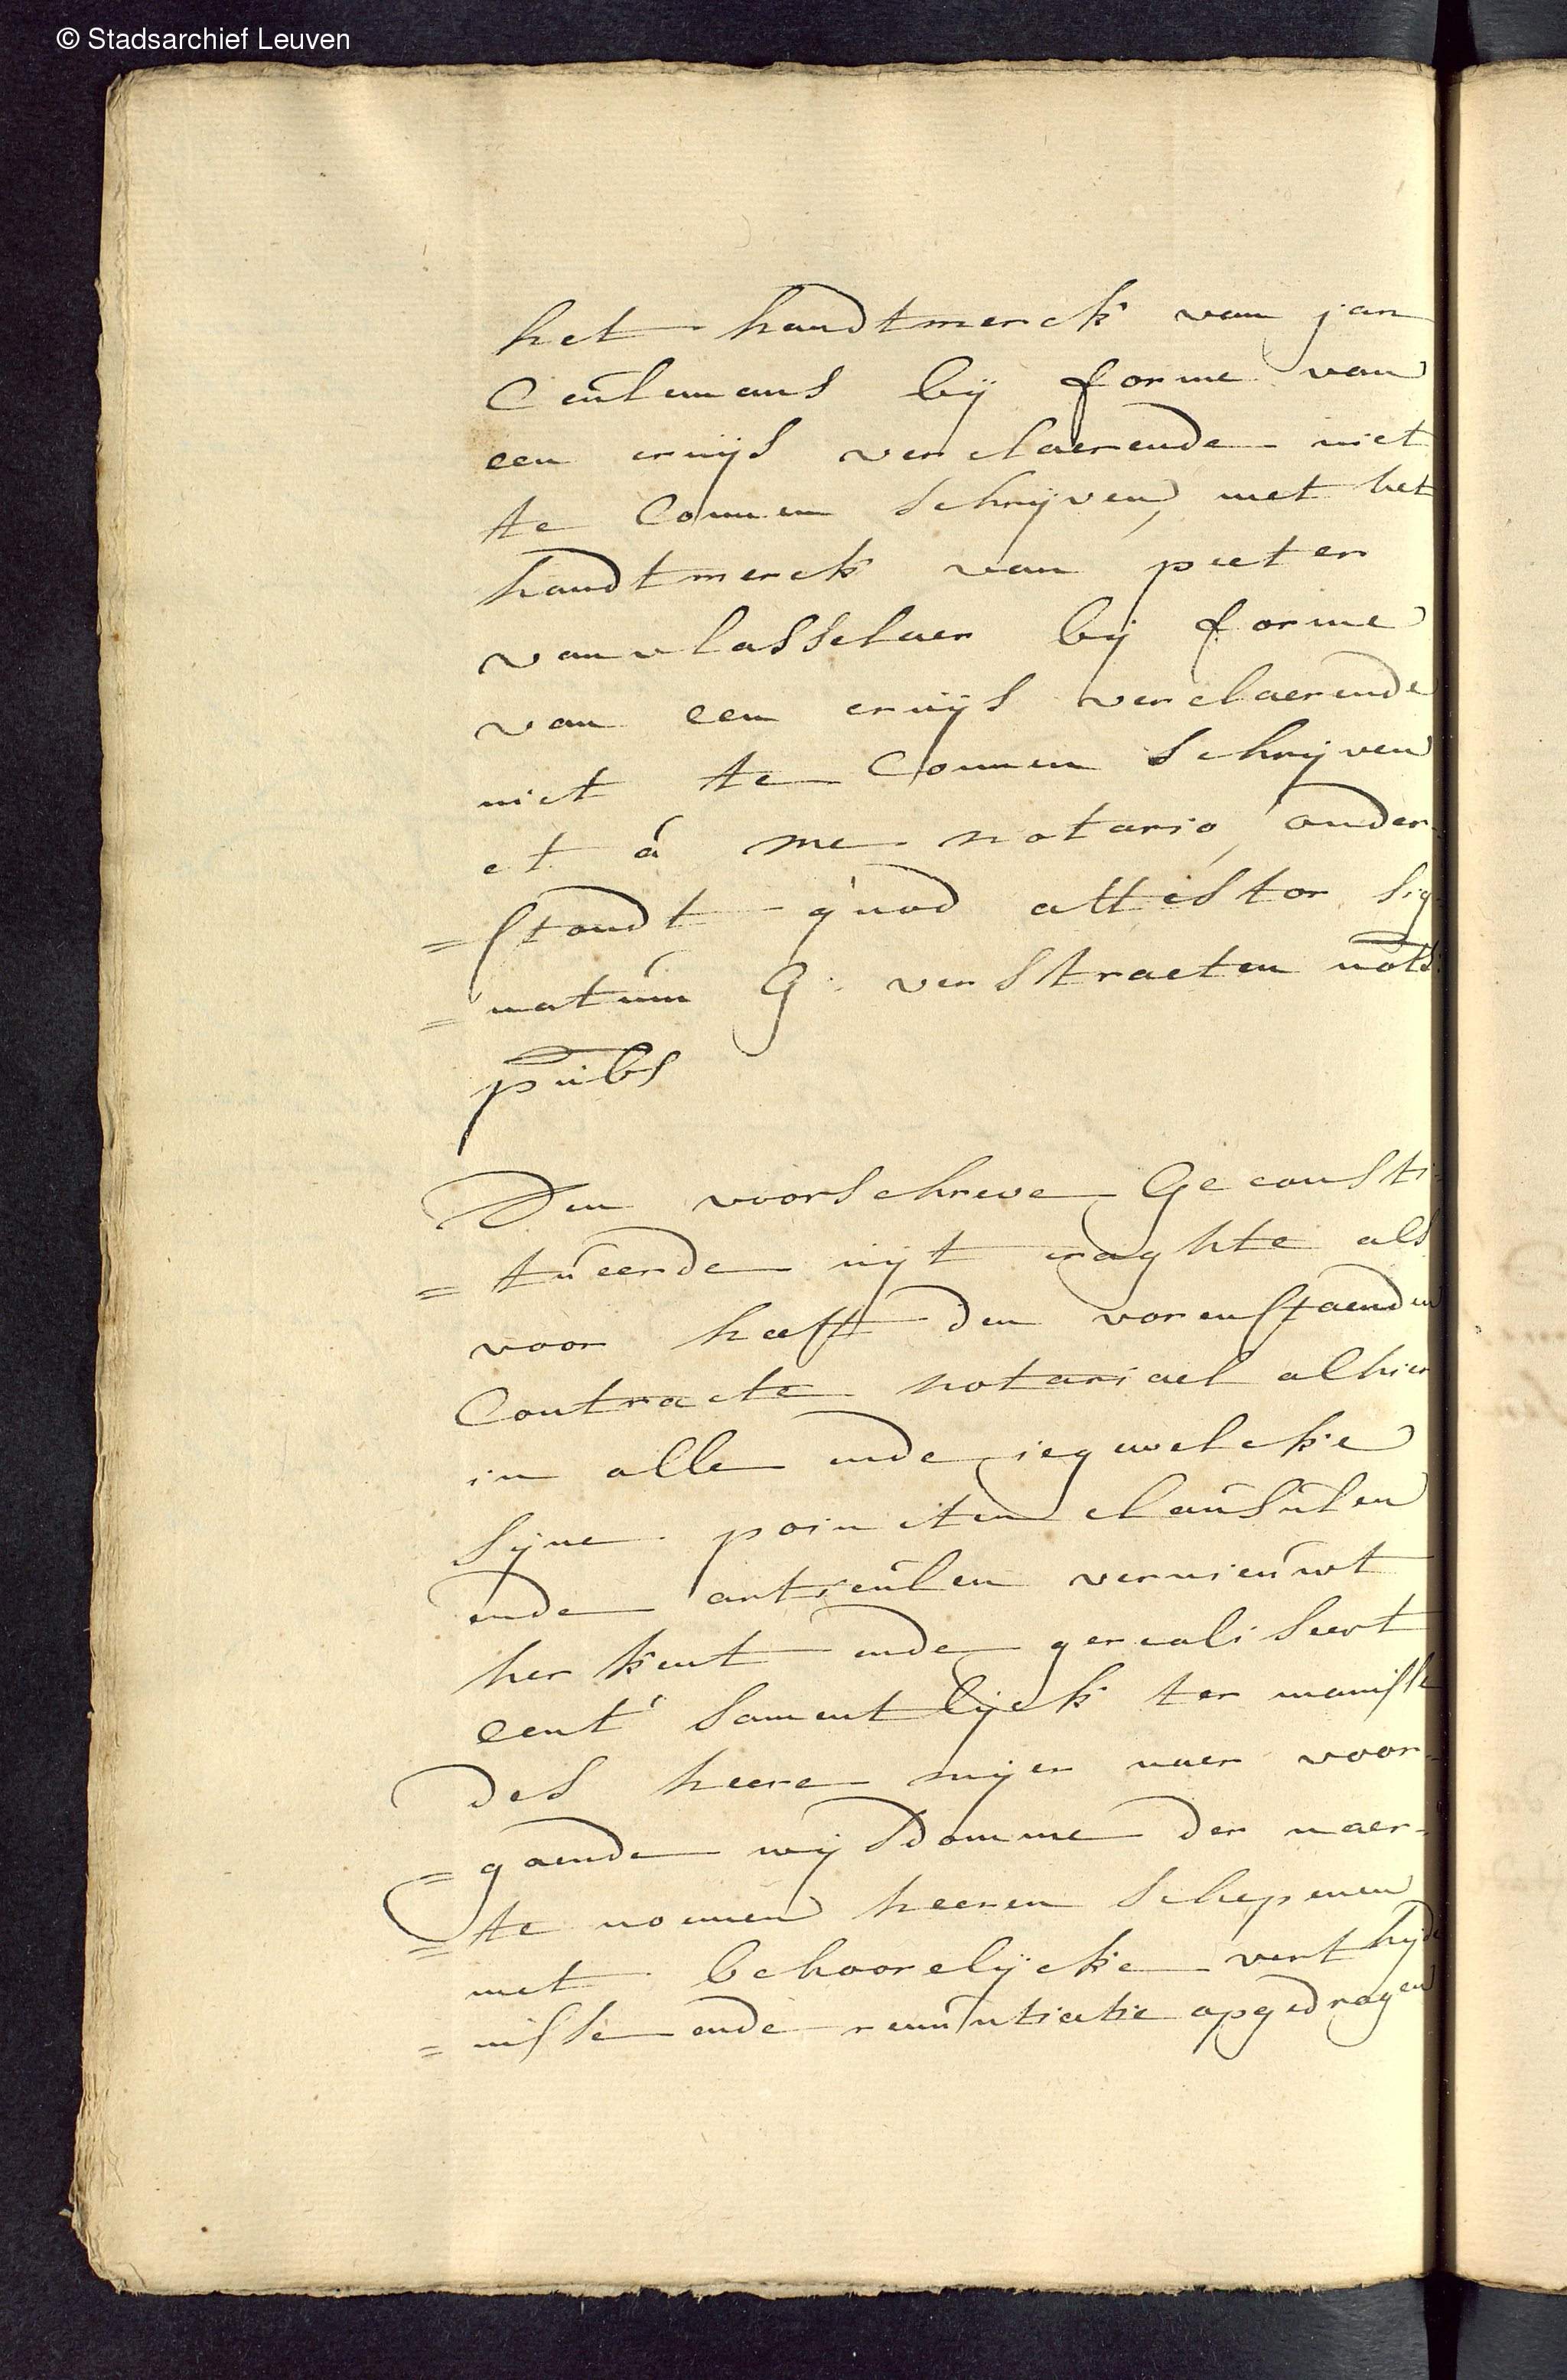 © Stadsarchief Leuven
het handtmerck van jan
Ceulemans bij forme van
een cruijs verclaerende niet
te Connen schrijven, met het
handtmerck van peeter
van vlasselaer bij forme
van een cruijs verclaerende
niet te Connen schrijven
et à me notario, onder
=stondt quod attestor sig
=natum G: verstraeten nots
pubs
Den voorschreve Geconsti
=tueerde uijt craghte als
voor heeft den vorenstaenden
Contracte notariael alhier
in alle ende iegewelcke
sijne poincten clausulen
ende articulen vernieuwt
herkent ende gerealiseert
ende samentlijck ter manisse
des heere mijer naer voor-
=gaende wijsdomme der naer-
=te noemen heeren schepenen
met behoorelijcke verthijde
=nisse ende renuntiatie opgedragen